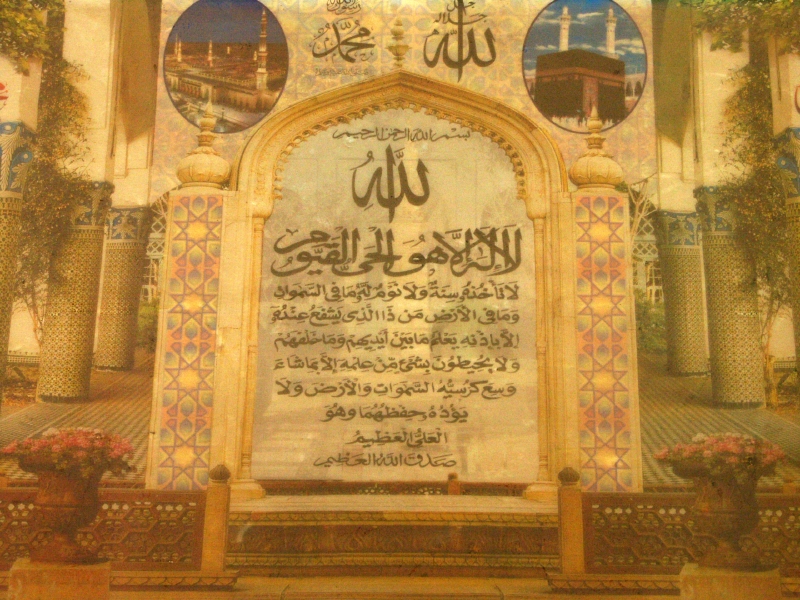 الله جل جلاله
محمد
بسم الله الرحمن الرحيم
الله
لا إله إلا هو الحي القيوم
لا تأخذه سنة ولا نوم له ما في السموات
وما في الأرض من ذا الذي يشفع عنده
إلا بإذنه يعلم ما بين أيديهم وما خلفهم
ولا يحيطون بشئ من علمه إلا بما شاء
وسع كرسيه السموات والأرض ولا
يؤده حفظهما وهو
العلي العظيم
صدق الله العظيم